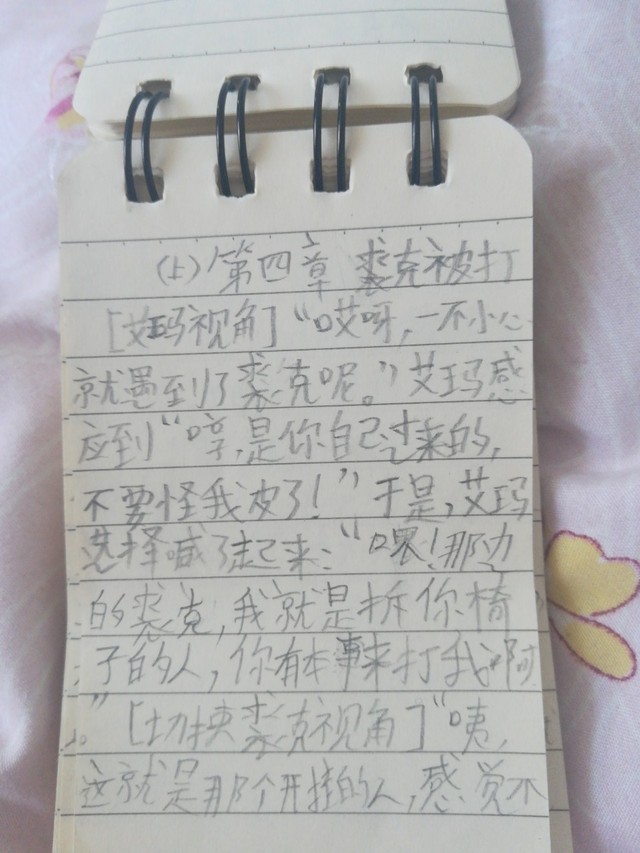 (上)第四章 裘克被打
[艾玛视角]“哎呀,一不小心
就遇到了裘克呢。”艾玛感
应到“哼,是你自己过来的,
不要怪我皮了!”于是,艾玛
选择喊了起来:“喂!那边
的裘克,我就是拆你椅
子的人,你有本事来打我啊
”[切换裘克视角]“咦,
这就是那个开挂的人,感觉不